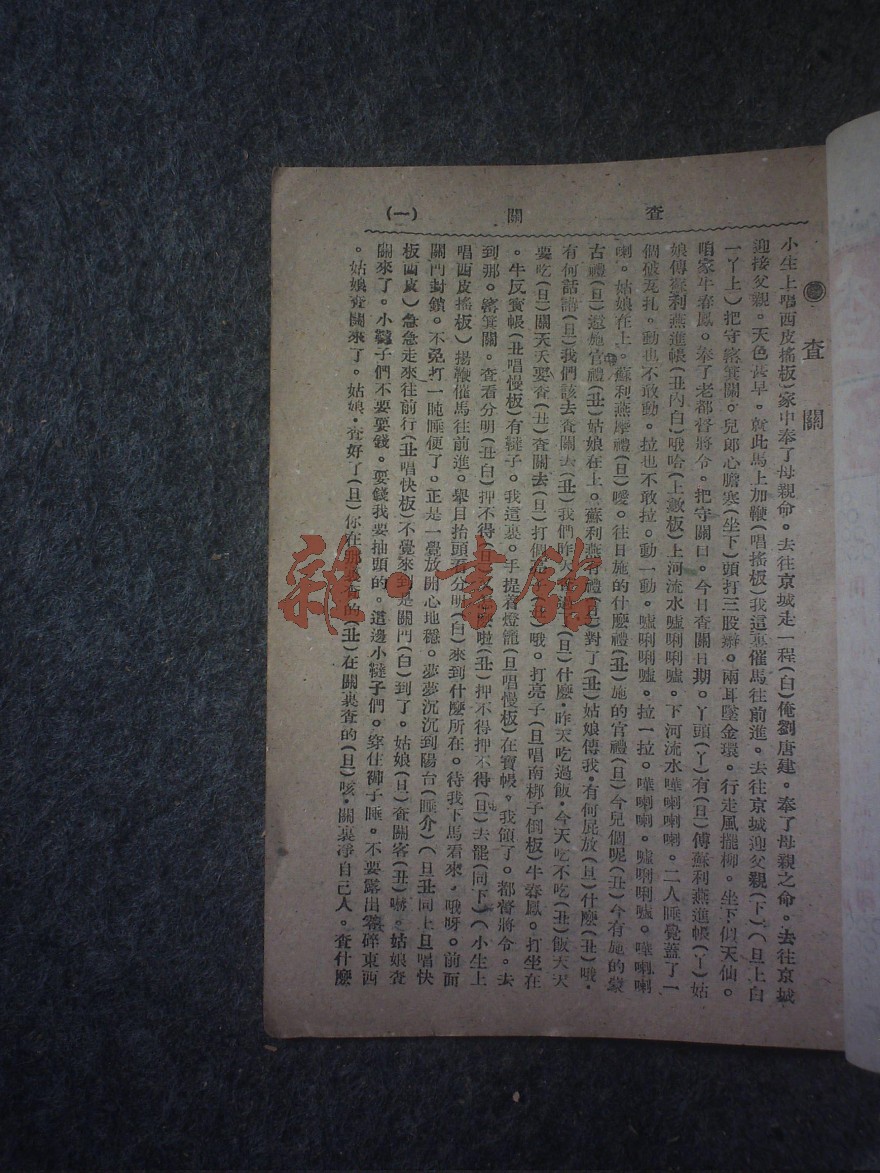 查　關　(一)
查　關
小生上唱西皮搖板)家中奉了母親命。去往京城走一程(白)俺劉唐建。奉了母親之命。去往京城
迎接父親。天色甚早。就此馬上加鞭(唱搖板)我這裏催馬往前進。去往京城迎父親(下)(旦上白
一丫上)把守簸箕關。兒郎心膽寒(坐下)頭打三股辮。兩耳墜金環。行走風擺柳。坐下似天仙。
咱家牛春鳳。奉了老都督將令。把守關口。今日查關日期。丫頭(丫)有(旦)傳蘇利燕進帳(丫)姑
娘傳蘇利燕進帳(丑內白)哦哈(上數板)上河流水嘘唎唎嘘。下河流水嘩喇喇喇。二人睡覺蓋了一
個破克扎。動也不敢動。拉也不敢拉。動一動。嘘唎唎嘘。拉一拉。嘩喇喇。嘘唎唎嘘。嘩喇喇
喇。姑娘在上。蘇利燕摩禮(旦)噯。往日施的什麼禮(丑)施的官禮(旦)今兒個呢(丑)今有施的蒙
古禮(旦)還施官禮(丑)姑娘在上。蘇利燕有禮(旦)對了(丑)姑娘傳我。有何屁放(旦)什麼(丑)哦。
有何話講(旦)我們該去查關去(丑)我們昨天查過了(旦)什麼。昨天吃過飯。今天吃不吃(丑)飯天天
要吃(旦)關天天要查(丑)查關去(旦)打個(丑)哦。打亮子(旦唱南梆子倒板)牛春鳳。打坐在
。牛反賓帳(丑唱慢板)有韃子。我這裏。手提着燈籠(旦唱慢板)在寶帳。我領了。都督將令。去
到那。簸箕關。查看分明(丑白)押不得(旦)麼啦(丑)押不得押不得(旦)去罷(同下)(小生上
唱西皮搖板)揚鞭催馬往前進。舉目抬頭看分明(白)來到什麼所在。待我下馬看來。哦呀。前面
關門封鎖。不免打一盹睡便了。正是一覺放開心地穩。夢夢沉沉到陽台(睡介)(旦丑同上旦唱快
板西皮)急急走來往前行(丑唱快板)不覺來到是關門(白)到了。姑娘(旦)查關客(丑)嚇。姑娘查
關來了。小韃子們不要耍錢。耍錢我要抽頭的。這邊小韃子們。穿住褲子睡。不要露出零碎東西
。姑娘查關來了。姑娘。查好了(旦)你在那裏查的(丑)在關裏查的(旦)咳。關裏凈自己人。查什麼
雜·書館